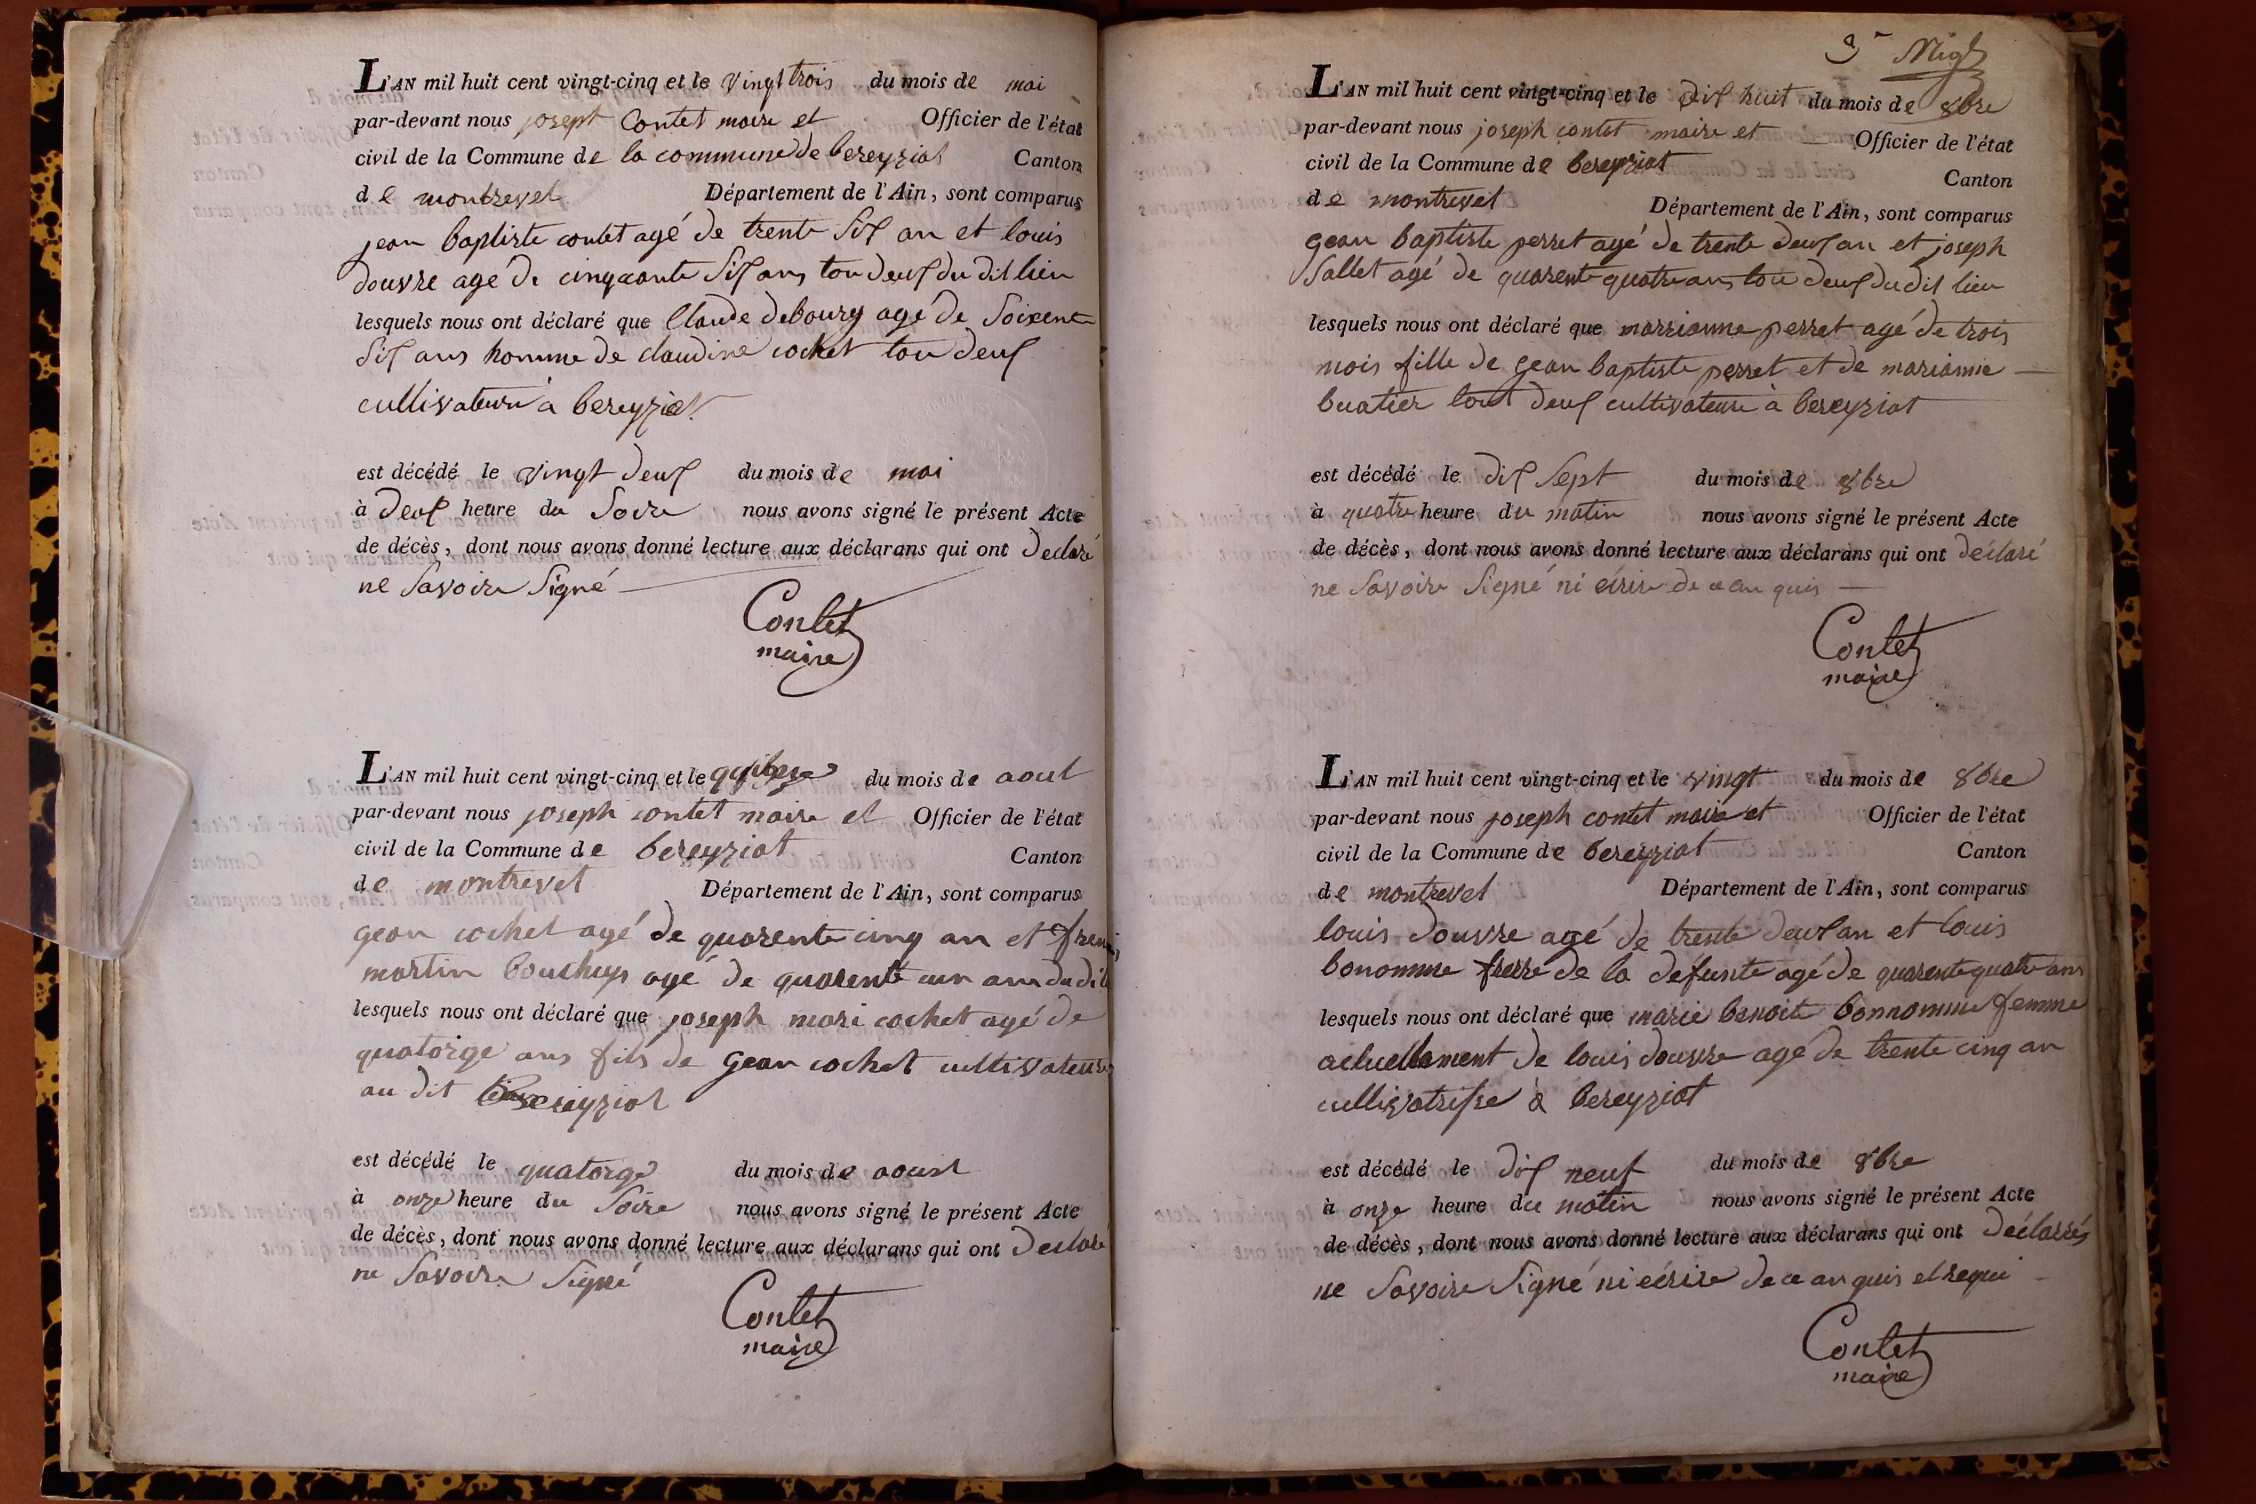 L'AN mil huit cent vingt-cinq et le vingt trois du mois de mai
par-devant nous josept Contet maire et Officier de l'état
civil de la Commune de la commune de bereyziat Canton
de montrevel Département de l'Ain, sont comparus
jean baptiste contet agé de trente six an et louis
douvre agé de cinqcante six ans tou deux du dit lieu
lesquels nous ont déclaré que Claude debourg agé de Soixente
six ans homme de claudine cochet tou deux
cultivateur à bereyziat
est décédé le vingt deux du mois de mai
à deux heure du Soire nous avons signé le présent Acte
de décès, dont nous avons donné lecture aux déclarans qui ont déclaré
ne Savoire Signé
Contet
maire
L'AN mil huit cent vingt-cinq et le du mois de aout
par-devant nous joseph contet maire et Officier de l'état
civil de la Commune de bereyziat Canton
de montrevel Département de l'Ain, sont comparus
gean cochet agé de quarente cinq an et
martin agé de quarente un ans du dit
lesquels nous ont déclaré que joseph mari cochet agé de
quatorze ans fils de gean cochet cultivateur
au dit Bereyziat
est décédé le quatorze du mois de aoust
à onze heure du Soire nous avons signé le présent Acte
de décès, dont nous avons donné lecture aux déclarans qui ont déclaré
ne Savoire Signé
Contet
maire
L'AN mil huit cent vingt-cinq et le dix huit du mois de 8bre
par-devant nous joseph contet maire et Officier de l'état
civil de la Commune de bereyziat Canton
de montrevel Département de l'Ain, sont comparus
gean baptiste perret agé de trente deux an et joseph
Sallet agé de quarente quatre ans tou deux du dit lieu
lesquels nous ont déclaré que marrianne perret agé de trois
mois fille de gean baptiste perret et de marianne
buatier tout deux cultivateur à bereyziat
est décédé le dix Sept du mois de 8bre
à quatre heure du matin nous avons signé le présent Acte
de décès, dont nous avons donné lecture aux déclarans qui ont déclaré
ne Savoire Signé ni écrire de ce an quis
Contet
maire
L'AN mil huit cent vingt-cinq et le vingt du mois de 8bre
par-devant nous joseph contet maire et Officier de l'état
civil de la Commune de bereyziat Canton
de montrevel Département de l'Ain, sont comparus
louis douvre agé de trente deux an et louis
bonomme frerre de la défunte agé de quarente quatre ans
lesquels nous ont déclaré que marie benoite bonnomme femme
actuellement de louis douvre agé de trente cinq an
cultivatrisse à bereyziat
est décédé le dix neuf du mois de 8bre
à onze heure du matin nous avons signé le présent Acte
de décès, dont nous avons donné lecture aux déclarans qui ont déclarés
ne Savoire Signé ni écrire de ce an quis et requi
Contet
maire